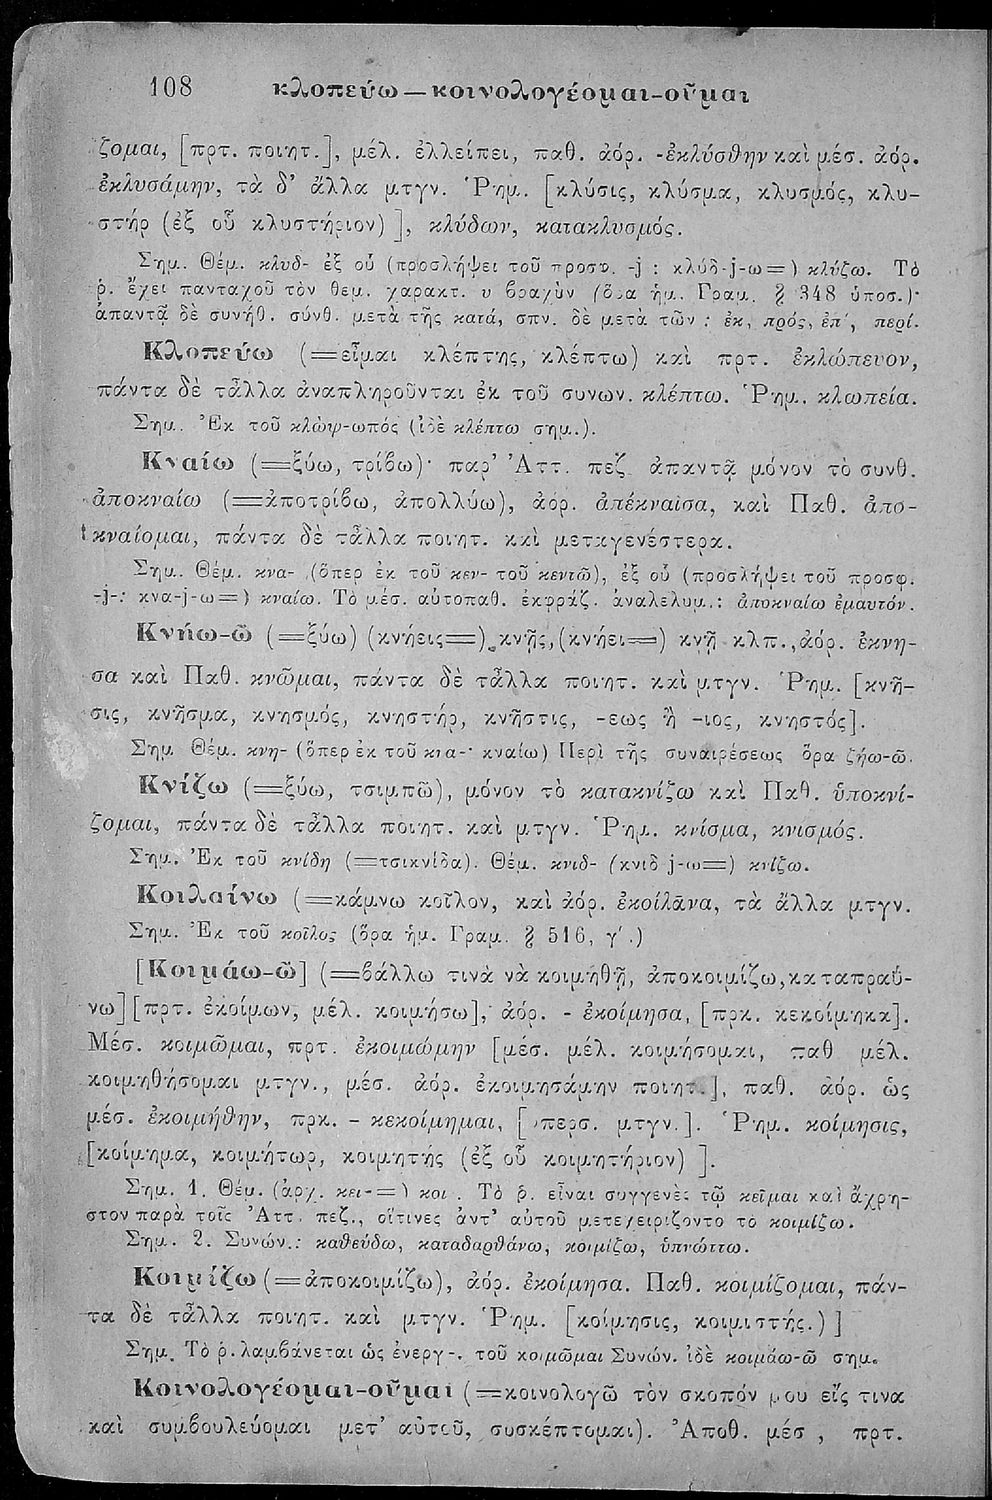 108 κλοπεύω — κοινολογέομαι-οῦμαι
ζομαι, [πρτ. ποιητ.], μέλ. ἐλλείπει, παθ. ἀόρ. -ἐκλύσθην καὶ μέσ. ἀόρ.
ἐκλυσάμην, τὰ δ' ἄλλα μτγν. Ῥημ. [κλύσις, κλύσμα, κλυσμός, κλυ-
στήρ (ἐξ οὗ κλυστήριον) ], κλύδων, κατακλυσμός.
Σημ. Θέμ. κλυδ- ἐξ οὗ (προσλήψει τοῦ προσφ. -j : κλύδ-j-ω=) κλύζω. Τὸ
ῥ. ἔχει πανταχοῦ τὸν θεμ. χαρακτ. υ βραχὺν (ὅρα ἡμ. Γραμ. § 348 ὑποσ.)·
ἀπαντᾷ δὲ συνήθ. σύνθ. μετὰ τῆς κατά, σπν. δὲ μετὰ τῶν : ἐκ, πρός, ἐπί, περί.
Κλοπεύω (=εἶμαι κλέπτης, κλέπτω) καὶ πρτ. ἐκλώπευον,
πάντα δὲ τἆλλα ἀναπληροῦνται ἐκ τοῦ συνων. κλέπτω. Ῥημ. κλωπεία.
Σημ. Ἐκ τοῦ κλὼψ-ωπός (ἰδὲ κλέπτω σημ.).
Κναίω (=ξύω, τρίβω)· παρ' Ἀττ. πεζ. ἀπαντᾷ μόνον τὸ συνθ.
ἀποκναίω (=ἀποτρίβω, ἀπολλύω), ἀόρ. ἀπέκναισα, καὶ Παθ. ἀπο-
κναίομαι, πάντα δὲ τἆλλα ποιητ. καὶ μεταγενέστερα.
Σημ. Θέμ. κνα- (ὅπερ ἐκ τοῦ κεν- τοῦ κεντῶ), ἐξ οὗ (προσλήψει τοῦ προσφ.
-j-: κνα-j-ω=) κναίω. Τὸ μέσ. αὐτοπαθ. ἐκφράζ. ἀναλελυμ.: ἀποκναίω ἐμαυτόν.
Κνήω-ῶ (=ξύω) (κνήεις=) κνῇς, (κνήει=) κνῇ κλπ., ἀόρ. ἔκνη-
σα καὶ Παθ. κνῶμαι, πάντα δὲ τἆλλα ποιητ. καὶ μτγν. Ῥημ. [κνῆ-
σις, κνῆσμα, κνησμός, κνηστήρ, κνῆστις, -εως ἢ -ιος, κνηστός].
Σημ. Θέμ. κνη- (ὅπερ ἐκ τοῦ κνα-· κναίω) Περὶ τῆς συναιρέσεως ὅρα ζήω-ῶ.
Κνίζω (=ξύω, τσιμπῶ), μόνον τὸ κατακνίζω καὶ Παθ. ὑποκνί-
ζομαι, πάντα δὲ τἆλλα ποιητ. καὶ μτγν. Ῥημ. κνίσμα, κνισμός.
Σημ. Ἐκ τοῦ κνίδη (=τσικνίδα). Θέμ. κνιδ- (κνιδ j-ω=) κνίζω.
Κοιλαίνω (=κάμνω κοῖλον, καὶ ἀόρ. ἐκοίλᾱνα, τὰ ἄλλα μτγν.
Σημ. Ἐκ τοῦ κοῖλος (ὅρα ἡμ. Γραμ. § 516, γ'.)
[Κοιμάω-ῶ] (=βάλλω τινὰ νὰ κοιμηθῇ, ἀποκοιμίζω, καταπραΰ-
νω] [πρτ. ἐκοίμων, μέλ. κοιμήσω], ἀόρ. - ἐκοίμησα, [πρκ. κεκοίμηκα].
Μέσ. κοιμῶμαι, πρτ. ἐκοιμώμην [μέσ. μέλ. κοιμήσομαι, παθ. μέλ.
κοιμηθήσομαι μτγν., μέσ. ἀόρ. ἐκοιμησάμην ποιητ.], παθ. ἀόρ. ὡς
μέσ. ἐκοιμήθην, πρκ. - κεκοίμημαι, [ὑπερσ. μτγν.]. Ῥημ. κοίμησις,
[κοίμημα, κοιμήτωρ, κοιμητής (ἐξ οὗ κοιμητήριον) ].
Σημ. 1. Θέμ. (ἀρχ. κει-=) κοι . Τὸ ῥ. εἶναι συγγενὲς τῷ κεῖμαι καὶ ἄχρη-
στον παρὰ τοῖς Ἀττ. πεζ., οἵτινες ἀντ' αὐτοῦ μετεχειρίζοντο τὸ κοιμίζω.
Σημ. 2. Συνών.: καθεύδω, καταδαρθάνω, κοιμίζω, ὑπνώττω.
Κοιμίζω (=ἀποκοιμίζω), ἀόρ. ἐκοίμησα. Παθ. κοιμίζομαι, πάν-
τα δὲ τἆλλα ποιητ. καὶ μτγν. Ῥημ. [κοίμησις, κοιμιστής.) ]
Σημ. Τὸ ῥ. λαμβάνεται ὡς ἐνεργ-. τοῦ κοιμῶμαι Συνών. ἰδὲ κοιμάω-ῶ σημ.
Κοινολογέομαι-οῦμαι (=κοινολογῶ τὸν σκοπόν μου εἴς τινα
καὶ συμβουλεύομαι μετ' αὐτοῦ, συσκέπτομαι). Ἀποθ. μέσ , πρτ.